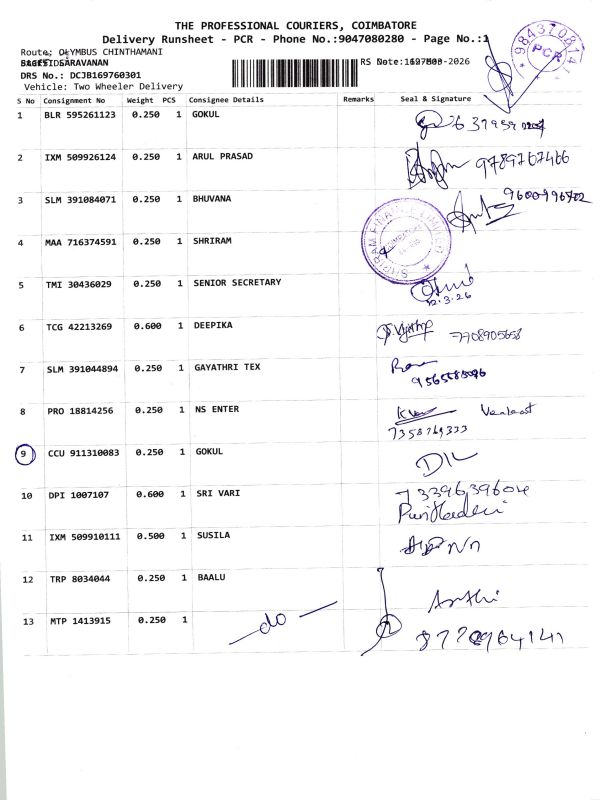 THE PROFESSIONAL COURIERS, COIMBATORE
Delivery Runsheet - PCR - Phone No.:9047080280 - Page No.:1
Route: OLYMBUS CHINTHAMANI
SARAVANAN
DRS No.: DCJB169760301
Vehicle: Two Wheeler Delivery
PCR
S No Consignment No Weight PCS Consignee Details Remarks Seal & Signature
1 BLR 595261123 0.250 1 GOKUL
2 IXM 509926124 0.250 1 ARUL PRASAD 9789767466
3 SLM 391084071 0.250 1 BHUVANA 9600996702
4 MAA 716374591 0.250 1 SHRIRAM
SHRIRAM FINANCE LIMITED
5 TMI 30436029 0.250 1 SENIOR SECRETARY
12.3.26
6 TCG 42213269 0.600 1 DEEPIKA 7708905658
7 SLM 391044894 0.250 1 GAYATHRI TEX
8 PRO 18814256 0.250 1 NS ENTER
7358769333
9 CCU 911310083 0.250 1 GOKUL
10 DPI 1007107 0.600 1 SRI VARI 7339639604
11 IXM 509910111 0.500 1 SUSILA
12 TRP 8034044 0.250 1 BAALU
13 MTP 1413915 0.250 1 do